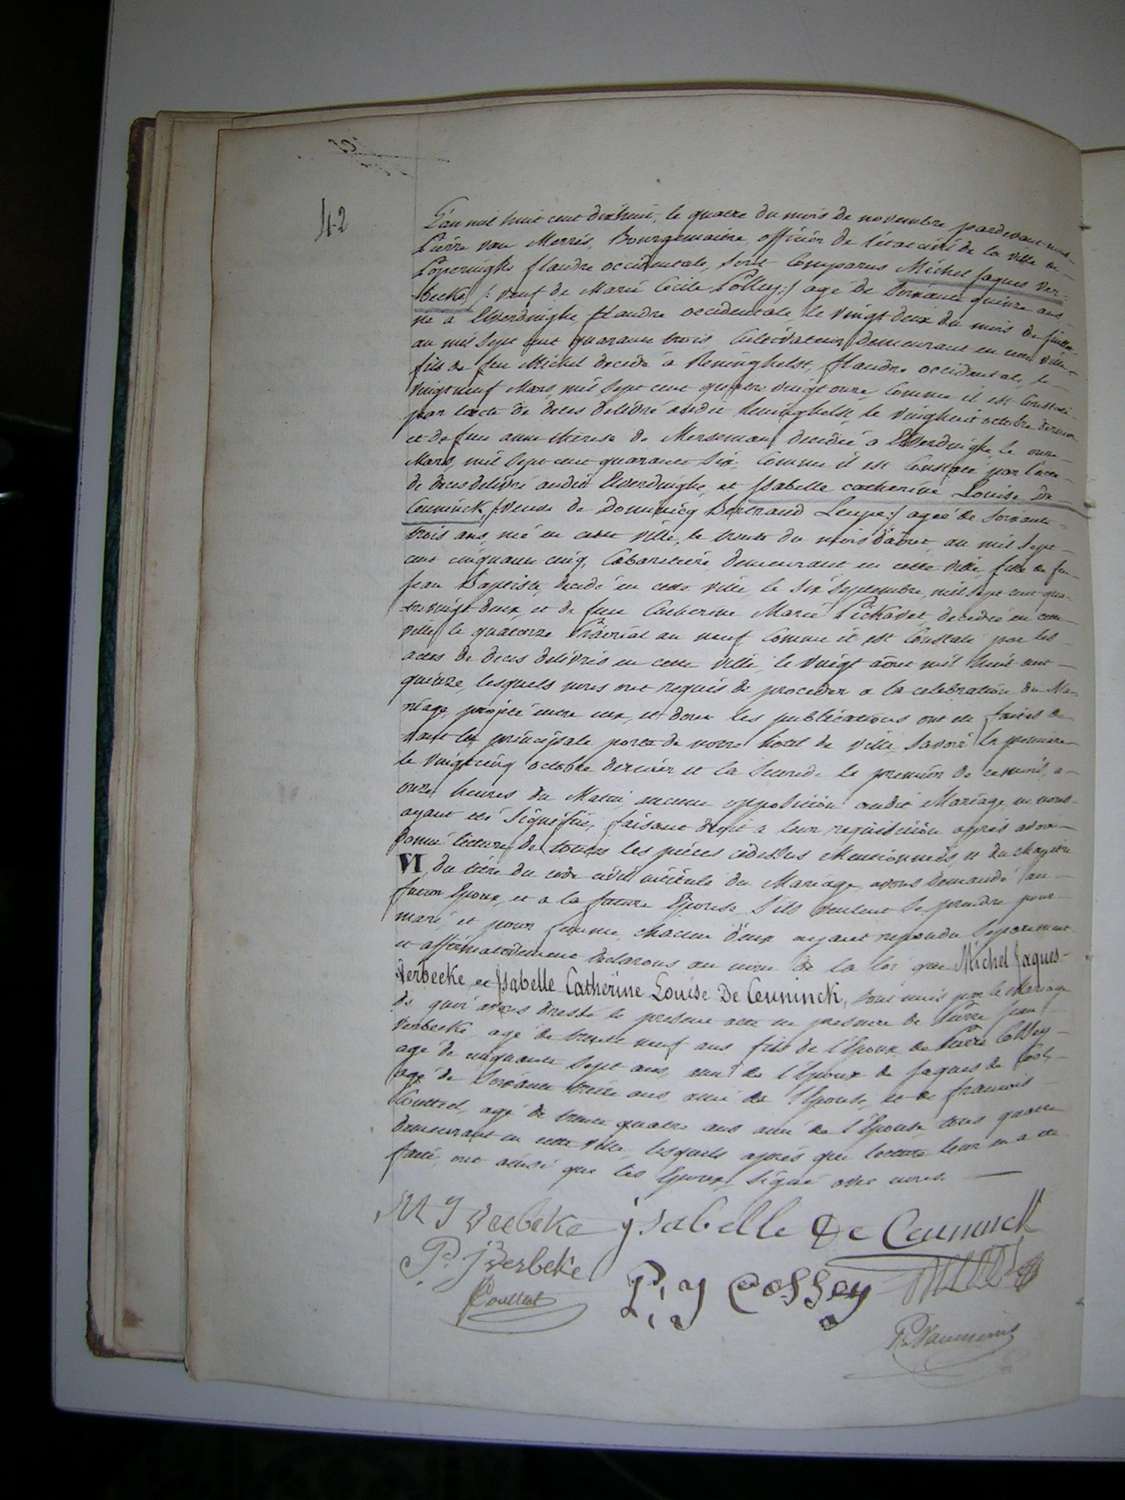 42
L'an mil huit cent dixhuit, le quatre du mois de novembre pardevant nous
Pierre van Merris, Bourgemaitre, officier de l'etat civil de la ville de
Poperinghe flandre occidentale, sont Comparus Michel Jaques Ver-
becke /: veuf de Marie Cecile Polley :/ agé de Soixante quinze ans
né a Elverdinghe flandre occidentale le vingt deux du mois de juillet
au mil sept cent quarante trois Cultivateur Demeurant en cette ville
fils de feu Michel decedé a Reninghelst, flandre occidentale, le
vingt neuf Mars, mil sept cent quatre vingt onze Comme il est Constaté
par l'acte de deces delivré audit Reninghelst, le vingthuit octobre dernier
et de feue anne therese de Merseman decedée a Elverdinghe le onze
Mars, mil sept cent quarante Six, Comme il est Constaté par l'acte
de deces delivré audit Elverdinghe, et Isabelle catherine Louise De
Ceuninck /: veuve de Dominicq Bertrand Leupe :/ agée de Soixante
trois ans, née en cette ville, le trente du mois d'aout, au mil sept
cent cinquante cinq, Cabaretiere Demeurant en cette ville, fille de feu
Jean Baptiste, decedé en cette ville le Six Septembre, mil sept cent qua-
tre vingt deux et de feue Catherine Marie Pêckavet, decedée en cette
ville, le quatorze Prairial an neuf Comme il est Constaté par les
actes de deces delivrés en cette ville le vingt aout mil huit cent
quinze, lesquels nous ont requis de proceder a la celebration du Ma-
riage projeté entre eux, et dont les publications ont été faites de-
vant la principale porte de notre hotel de ville, Savoir la premiere
le vingt cinq octobre dernier et la Seconde le premier de ce mois, a
onze heures du Matin, aucune opposition audit Mariage ne nous
ayant été Signifiée, faisant droit a leur requisition apres avoir
donné lecture de toutes les pièces cidessus Mentionnées et du chapitre
VI du titre du code civil intitulé du Mariage avons demandé au
futur Epoux, et a la future Epouse S'ils veulent Se prendre pour
mari et pour femme, chacun d'eux ayant repondu Separement
et affirmativement Declarons au nom de la loi que Michel Jaques
Verbecke et Isabelle Catherine Louise De Ceuninck, Sont unis par le Mariage
de quoi avons dressé le present acte en presence de Pierre Jean
Verbecke, agé de trente neuf ans fils de l'Epoux de Pierre Cossey
agé de cinquante Sept ans, ami de l'Epoux de Jaques de
agé de Soixante treize ans ami de l'Epouse, et de francois
Couttet, agé de trente quatre ans ami de l'Epouse tous quatre
demeurant en cette ville, lesquels après que lecture leur en a eté
faite, ont ainsi que les Epoux, Signé avec nous.
M J verbeke ysabelle De Ceuninck
P. J Verbeke P, y Cossey
Couttet
P. Vanmerris